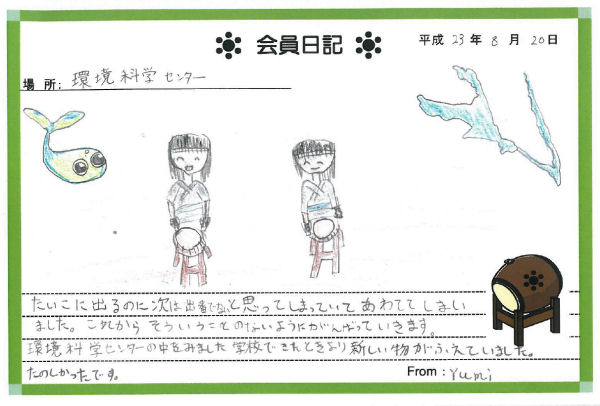 会員日記
平成 23 年 8 月 20 日
場所: 環境科学センター
たいこに出るのに次は出番でないと思ってしまっていて あわててしまい
ました。これから そういうことのないようにがんばっていきます。
環境科学センターの中をみました 学校できたときより 新しい物がふえていました。
たのしかったです。
From: Yumi